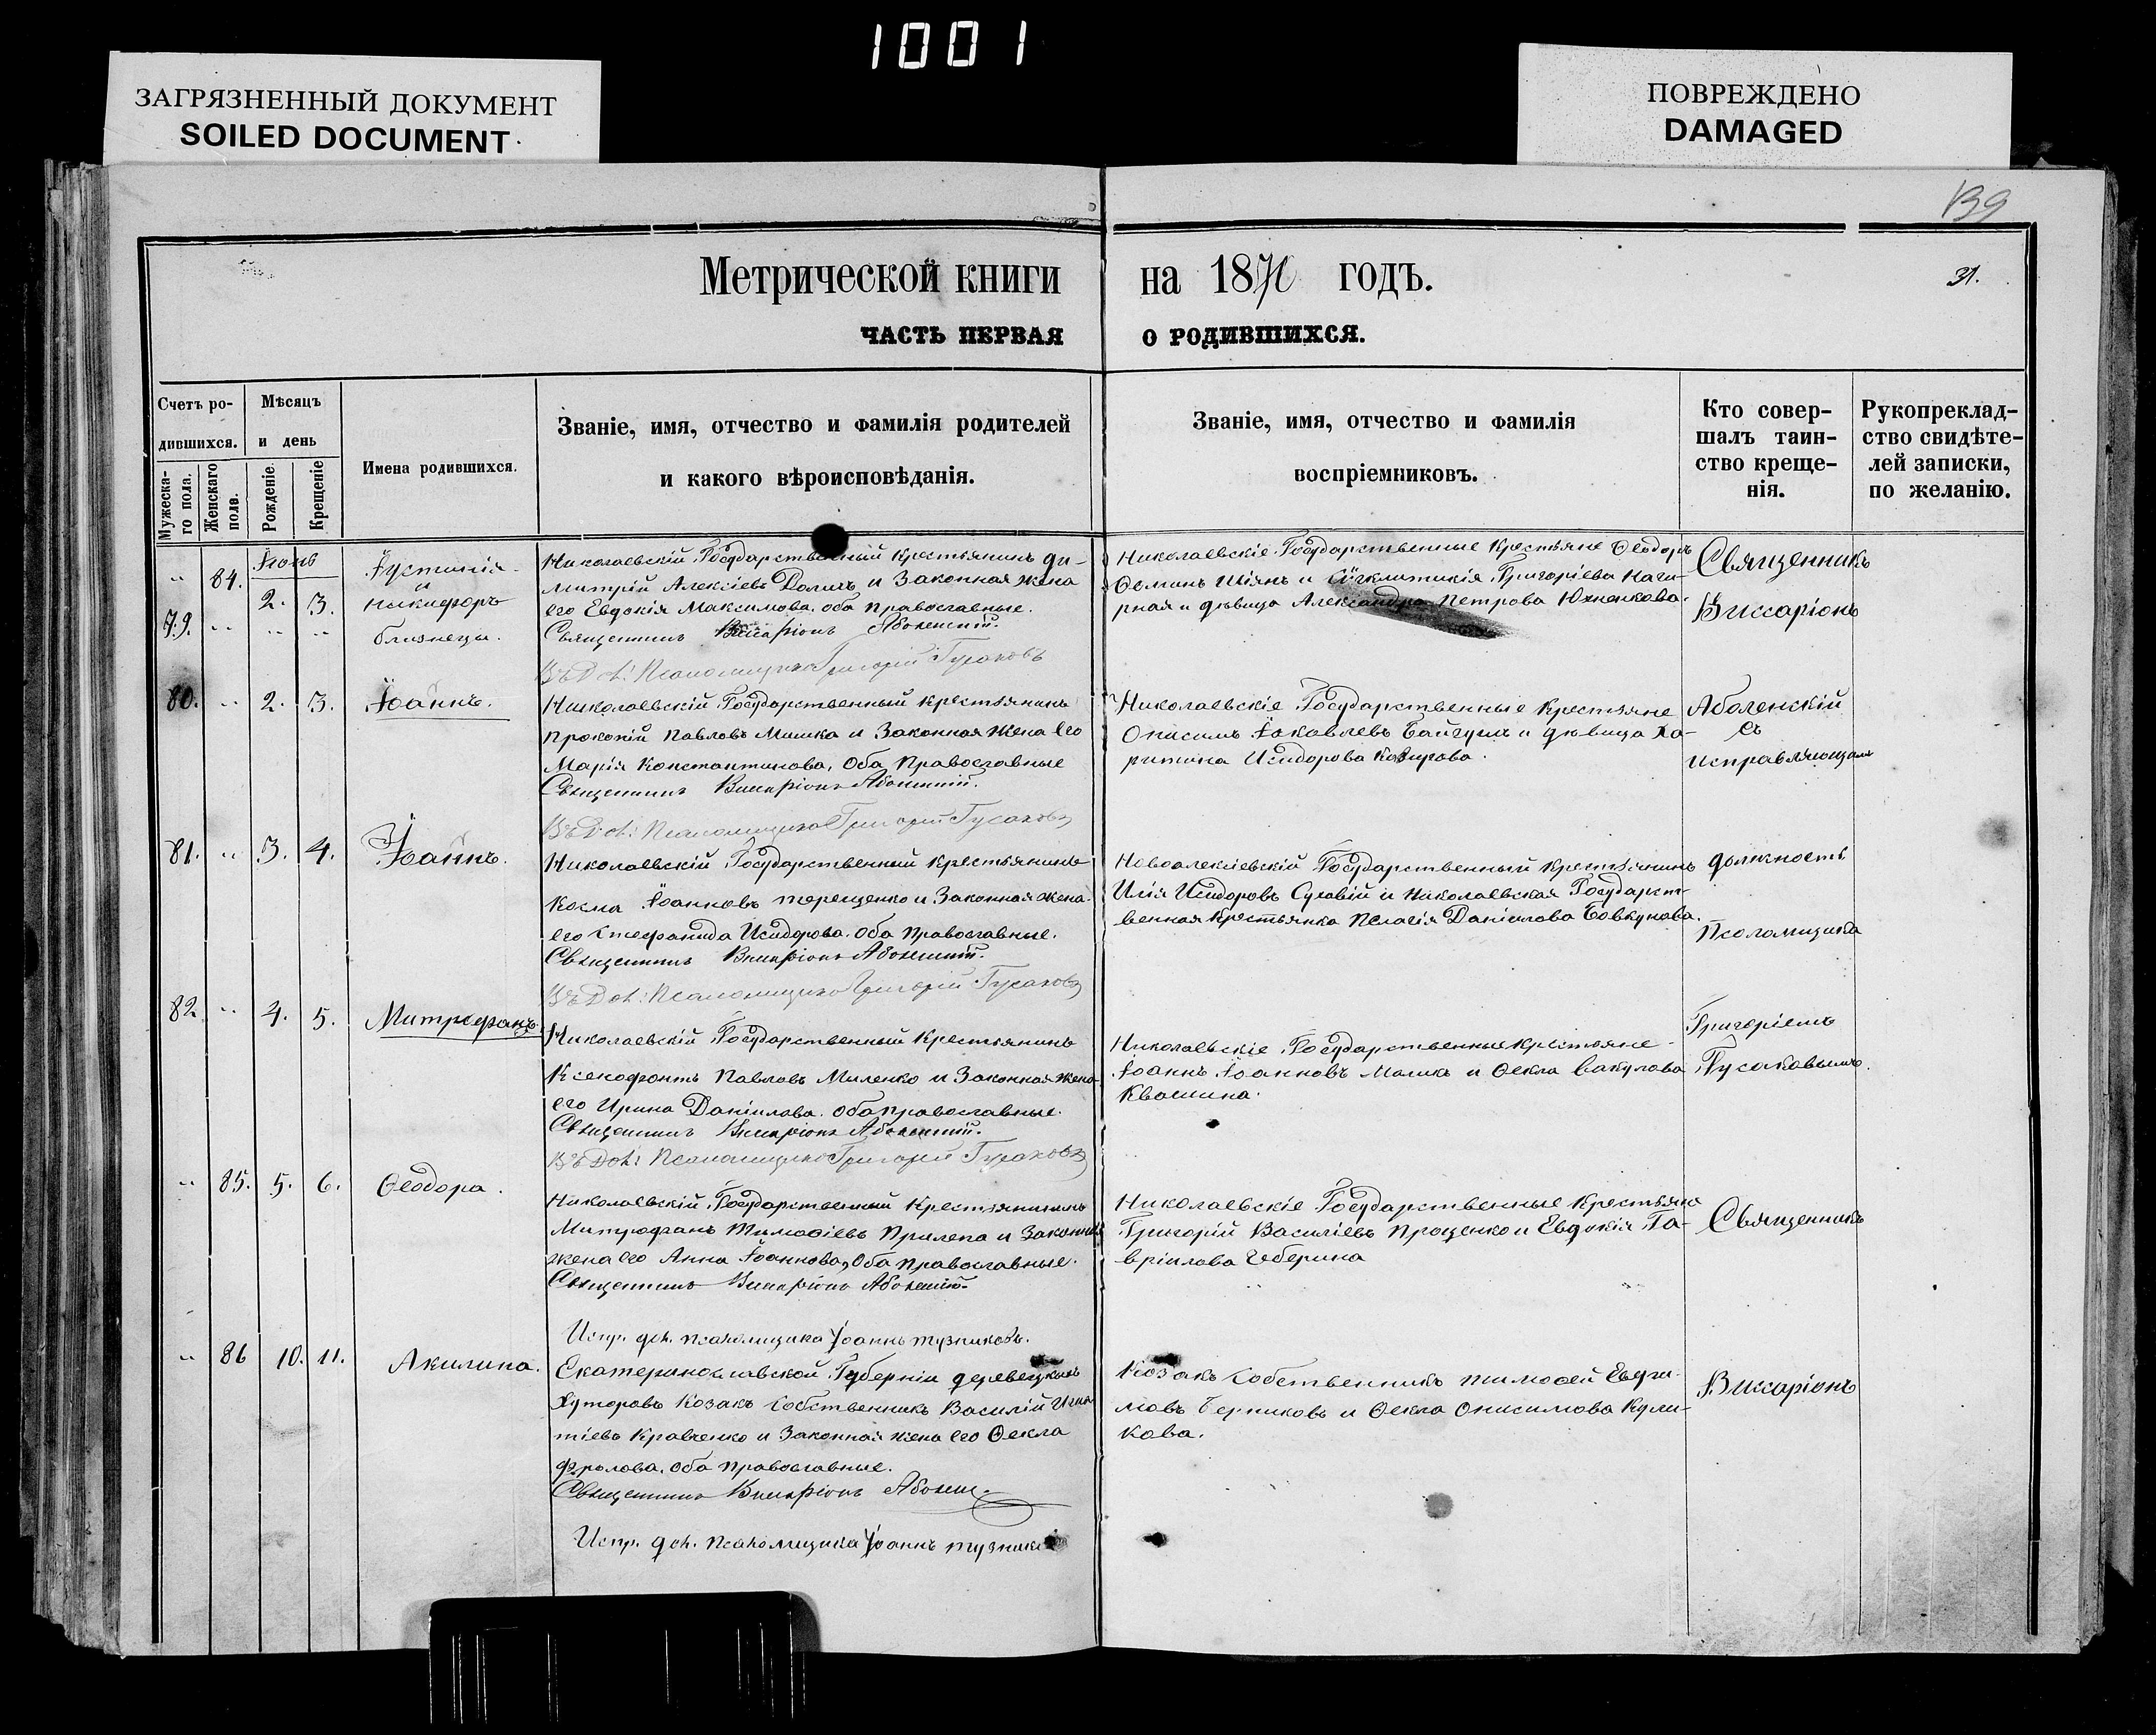 1001
ЗАГРЯЗНЕННЫЙ ДОКУМЕНТ
SOILED DOCUMENT
ПОВРЕЖДЕНО
DAMAGED
139
Метрической книги на 1870 годъ.
31.
ЧАСТЬ ПЕРВАЯ О РОДИВШИХСЯ.
Счетъ ро-
дившихся.
Мужеска-
го пола.
Женскаго
пола.
Мѣсяцъ
и день
Рожденіе.
Крещеніе
Имена родившихся.
Званіе, имя, отчество и фамилія родителей
и какого вѣроисповѣданія.
Званіе, имя, отчество и фамилія
воспріемниковъ.
Кто совер-
шалъ таин-
ство креще-
нія.
Рукопреклад-
ство свидѣте-
лей записки,
по желанію.
84.
79.
2. 3.
Іустинія
и
Никифоръ
близнецы.
Николаевскій Государственный крестьянинъ Ди-
митрій Алексіевъ и Законная жена
его Евдокія Максимова. оба православные.
Священникъ Виссаріонъ Аболенскій.
Псаломщика Григорій Гусаковъ
Николаевскіе Государственные крестьяне Ѳеодоръ
и Сѵгклитикія Григоріева
и дѣвица Александра Петрова
Священникъ
Виссаріонъ
80. 2. 3. Іоаннъ.
Николаевскій Государственный крестьянинъ
Прокопій Павловъ Мишка и Законная жена его
Марія Константинова, Оба Православные
Священникъ Виссаріонъ Аболенскій.
Псаломщика Григорій Гусаковъ
Николаевскіе Государственные крестьяне
Онисимъ Іаковлевъ и дѣвица Ха-
ритина Исидорова
Аболенскій
съ
исправляющимъ
81. 3. 4. Іоаннъ.
Николаевскій Государственный крестьянинъ
Косма Іоанновъ Терещенко и Законная жена
его Стефанида Исидорова. оба православные.
Священникъ Виссаріонъ Аболенскій.
Псаломщика Григорій Гусаковъ
Новоалексіевскій Государственный крестьянинъ
Илія Исидоровъ Суховій и Николаевская Государст-
венная крестьянка Пелагія Даніилова Бовкунова.
должность
Псаломщика
82. 4. 5. Митрофанъ.
Николаевскій Государственный крестьянинъ
Ксенофонтъ Павловъ Миленко и Законная жена
его Ирина Даніилова. оба православные.
Священникъ Виссаріонъ Аболенскій.
Псаломщика Григорій Гусаковъ
Николаевскіе Государственные крестьяне
Іоаннъ Іоанновъ Маликъ и Ѳекла Вакулова
Квашина.
Григоріемъ
Гусаковымъ.
85. 5. 6. Ѳеодора.
Николаевскій Государственный крестьянинъ
Митрофанъ Тимоѳіевъ Прилепа и Законная
жена его Анна Іоаннова, Оба православные.
Священникъ Виссаріонъ Аболенскій.
Испр. дол. псаломщика Іоаннъ Тузниковъ.
Николаевскіе Государственные крестьяне
Григорій Василіевъ Проценко и Евдокія Га-
вріилова
Священникъ
86 10. 11. Акилина.
Екатеринославской Губерніи
Хуторовъ Козакъ Собственникъ Василій Игна-
тіевъ Кравченко и Законная жена его Ѳекла
Фролова. оба православные.
Священникъ Виссаріонъ
Испр. дол. псаломщика Іоаннъ
Козакъ Собственникъ Тимоѳей Евфи-
мовъ Берниковъ и Ѳекла Онисимова Кули-
кова.
Виссаріонъ